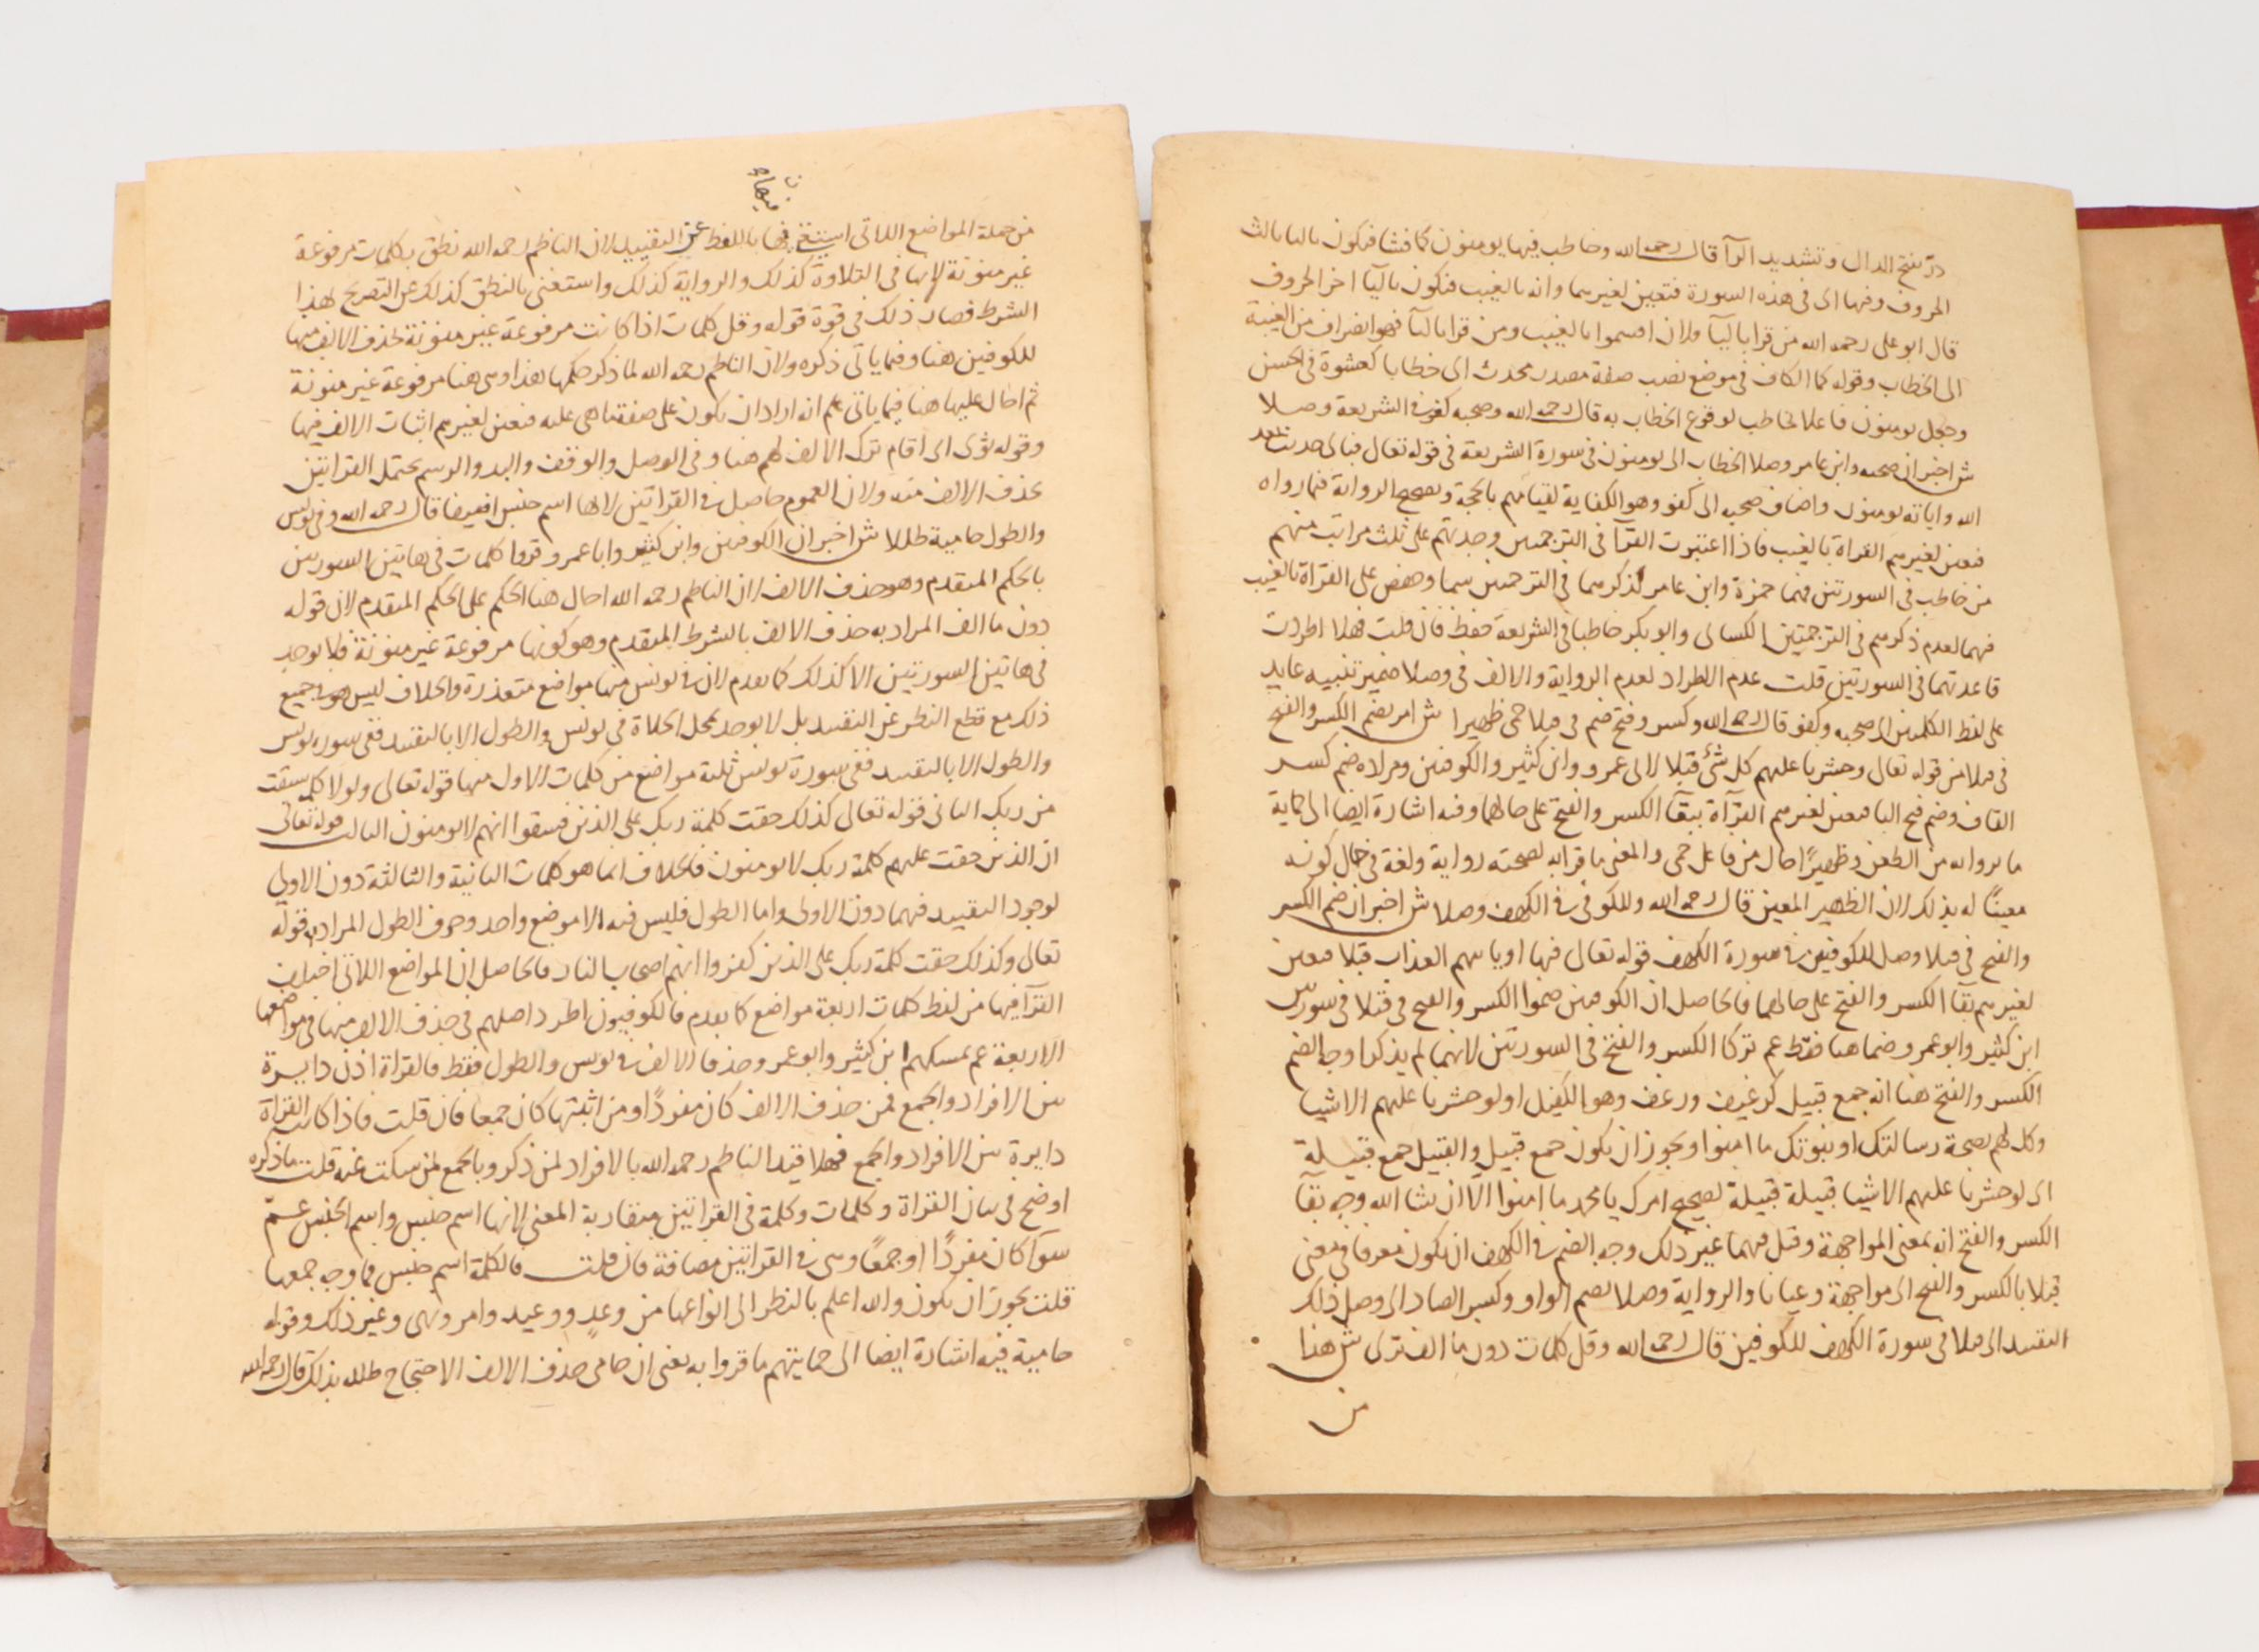 درّ بفتح الدال وتشديد الرآ قال رحمه الله وخاطب فيها يومنون كما فشا فيكون بالتا بالث
المروف وفيها اى فى هذه السورة فتعين لغيرهما وانه بالغيب فيكون باليآ اخر الحروف
قال ابو على رحمه الله من قرا باليآ ولان اقسموا بالغيب ومن قرا بالتآ فهو انصراف من الغيبة
الى الخطاب وقوله كما الكاف فى موضع نصب صفة مصدر محدث اى خطابا كعشوة فى الحسن
وجعل يومنون فاعلا لخاطب لوقوع الخطاب به قال رحمه الله وصحبه كفو فى الشريعة وصلا
ش اخبر ان صحبه وابن عامر وصلا الخطاب الى يومنون فى سورة الشريعة فى قوله تعالى فباى حديث بعد
الله واياته يومنون واضاف صحبه الى كفو وهو الكفاية لقيامهم بالحجة وتصحيح الرواية فيما رواه
فتعين لغيرهم القراة بالغيب فاذا اعتبرت القرآ فى الترجمتين وجدتهم على ثلث مراتب منهم
من خاطب فى السورتين فهما حمزة وابن عامر لذكرهما فى الترجمتين سما وحفص على القراة بالغيب
فيهما لعدم ذكرهم فى الترجمتين الكساى وابو بكر خاطبا فى الشريعة فقط فان قلت فهلا اطردت
قاعدتهما فى السورتين قلت عدم الاطراد لعدم الرواية والالف فى وصلا ضمير تثنيه عايد
على لفظ الكلمتين اى صحبه وكفو قال رحمه الله وكسر وفتح ضم فى قبلا حمى ظهيرا ش امر بضم الكسر والفتح
فى قبلا من قوله تعالى وحشرنا عليهم كل شئ قبلا لابى عمرو وابن كثير والكوفيين ومراده ضم كسر
القاف وضم فتح البا فتعين لغيرهم القرآة ببقآ الكسر والفتح على حالهما وفيه اشارة ايضا الى حماية
ما يرواه من الطعن وظهيرًا حال من فاعل حمى والمعنى ما قرا به لصحته رواية ولغة فى حال كونه
معينًا له بذلك لان الظهير المعين قال رحمه الله وللكوفى فى الكهف وصلا ش اخبر ان ضم الكسر
والفتح فى قبلا وصل للكوفيين فى سورة الكهف قوله تعالى فيها او ياتيهم العذاب قبلا فتعين
لغيرهم بقآ الكسر والفتح على حالهما فالحاصل ان الكوفيين ضموا الكسر والفتح فى قبلا فى سورتين
ابن كثير وابو عمرو ضما هنا فقط ثم تركا الكسر والفتح فى السورتين لانهما لم يذكرا وجه الضم
الكسر والفتح هنا انه جمع قبيل كرغيف ورغف وهو الكفيل او لو حشرنا عليهم الاشيا
وكل لهم بصحة رسالتك او بنبوتك ما امنوا ويجوز ان يكون جمع قبيل والقبيل جمع قبيلة
اى لو حشرنا عليهم الاشيا قبيلة قبيلة لصحيح امرك يا محمد ما امنوا الا ان يشا الله وجه بقآ
الكسر والفتح انه بمعنى المواجهة وقيل فيهما غير ذلك وجه الضم فى الكهف ان يكون معرفا فى معنى
قبلا بالكسر والفتح اى مواجهة وعيانا والرواية وصلا بضم الواو وكسر الصاد اى وصل ذلك
التقييد الى قبلا فى سورة الكهف للكوفيين قال رحمه الله وقل كلمات دون ما الف ثوى ش هذا
من
فيهاء
من جملة المواضع اللاتى استغنى فيها باللفظ عن التقييد لان الناظم رحمه الله نطق بكلمات مرفوعة
غير منونة لانها فى التلاوة كذلك والرواية كذلك واستغنى بالنطق كذلك عن التصريح بهذا
الشرط فصار ذلك فى قوة قوله وقل كلمات اذا كانت مرفوعة غير منونة بحذف الالف منها
للكوفيين هنا وفيما ياتى ذكره ولان الناظم رحمه الله لما ذكر حكمها هذا وهى هنا مرفوعة غير منونة
ثم احال عليها هنا فيما ياتى علم انه اراد ان يكون على صفة ما هى عليه فتعين لغيرهم اثبات الالف فيها
وقوله ثوى اى اقام ترك الالف لهم هنا وفى الوصل والوقف والبدء والرسم يحتمل القراتين
بحذف الالف منه ولان العموم حاصل فى القراتين لانها اسم جنس اضيفا قال رحمه الله وفى يونس
والطول حاميه ظللا ش اخبر ان الكوفيين وابن كثير وابا عمرو قروا كلمات فى هاتين السورتين
بالحكم المتقدم وهو حذف الالف لان الناظم رحمه الله احال هنا الحكم على الحكم المتقدم لان قوله
دون ما الف المراد به حذف الالف بالشرط المتقدم وهو كونها مرفوعة غير منونة فلا يوجد
فى هاتين السورتين الا كذلك كما تقدم لان فى يونس منها مواضع متعددة والخلاف ليس هو فى جميع
ذلك مع قطع النظر عن التقييد بل لا يوجد محل الخلاف فى يونس والطول الا بالتقييد ففى سورة يونس
والطول الا بالتقييد ففى سورة يونس ثلثة مواضع من كلمات الاول منها قوله تعالى ولولا كلمة سبقت
من ربك الثانى قوله تعالى كذلك حقت كلمة ربك على الذين فسقوا انهم لا يومنون الثالث قوله تعالى
ان الذين حقت عليهم كلمة ربك لا يومنون فالخلاف انما هو كلمات الثانية والثالثة دون الاولى
لوجود التقييد فيهما دون الاولى واما الطول فليس فيه الا موضع واحد وحرف الطول المراد به قوله
تعالى وكذلك حقت كلمة ربك على الذين كفروا انهم اصحاب النار فالحاصل ان المواضع اللاتى اختلف
القرآ فيها من لفظ كلمات اربعة مواضع كما تقدم فالكوفيون اطرد اصلهم فى حذف الالف منها فى مواضعها
الاربعة ثم تمسكهم ابن كثير وابو عمرو حذفا الالف فى يونس والطول فقط فالقراة اذن دايرة
بين الافراد والجمع فمن حذف الالف كان مفردًا ومن اثبتها كان جمعا فان قلت فاذا كانت القراة
دايرة بين الافراد والجمع فهلا قيد الناظم رحمه الله بالافراد لمن ذكر وبالجمع لمن سكت عنه قلت ما ذكره
اوضح فى بيان القراة وكلمات وكلمة فى القراتين متقاربة المعنى لانها اسم جنس واسم الجنس عمّ
سوآ كان مفردًا او جمعًا وهى فى القراتين مضافة فان قلت فالكلمة اسم جنس فما وجه جمعها
قلت يجوز ان يكون والله اعلم بالنظر الى انواعها من وعدٍ ووعيد وامر ونهى وغير ذلك وقوله
حاميه فيه اشارة ايضا الى حمايتهم ما قروا به يعنى ان حامى حذف الالف الاحتجاج ظلله بذلك قال رحمه الله